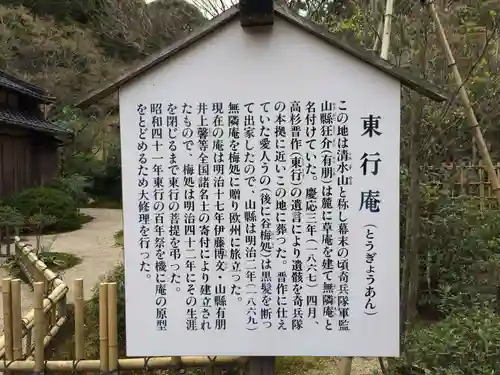 東行庵
(とうぎょうあん)
この地は清水山と称し幕末の頃奇兵隊軍監
山縣狂介(有朋)は麓に草庵を建て無隣庵と
名付けていた。慶応三年(一八六七)四月、
高杉晋作(東行)の遺言により遺骸を奇兵隊
の本拠に近いこの地に葬った。晋作に仕え
ていた愛人うの(後に谷梅処)は黒髪を断っ
て出家したので、山縣は明治二年(一八六九)
無隣庵を梅処に贈り欧州に旅立った。
現在の庵は明治十七年伊藤博文・山縣有朋
井上馨等全国諸名士の寄付により建立され
たもので、梅処は明治四十二年にその生涯
を閉じるまで東行の菩提を弔った。
昭和四十一年東行の百年祭を機に庵の原型
をとどめるため大修理を行った。